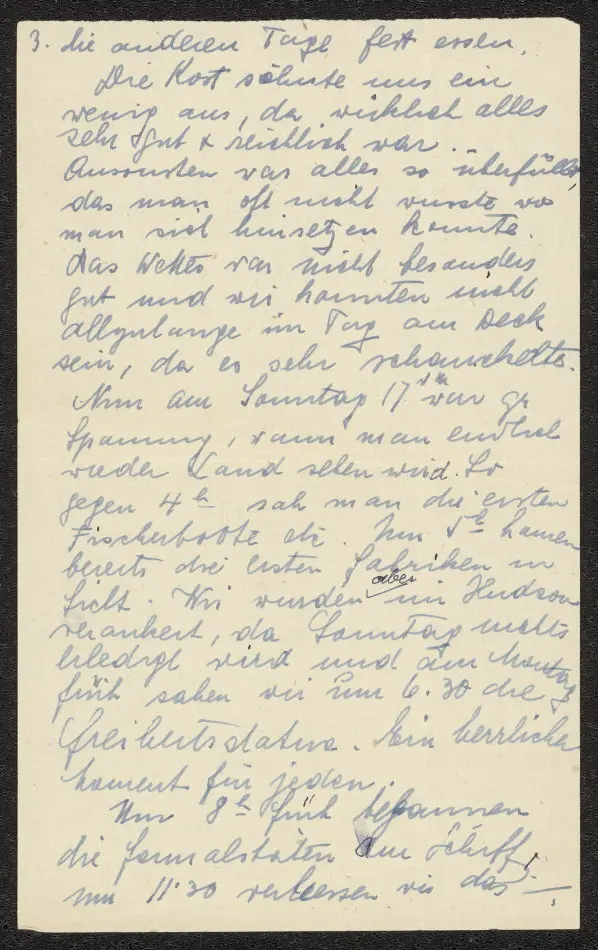 3. die anderen Tage fest essen.
Die Kost söhnte uns ein
wenig aus, da wirklich alles
sehr gut & reichlich war.
Ansonsten war alles so überfüllt,
das man oft nicht wusste wo
man sich hinsetzen konnte.
Das Wetter war nicht besonders
gut und wir konnten nicht
allzulange im Tag am Deck
sein, da es sehr schauckelte.
Nun am Sonntag 17ten war gr
Spannung, wann man endlich
wieder Land sehen wird. So
gegen 4h sah man die ersten
Fischerboote etc. Um 5h kamen
bereits drei ersten Fabriken in
Sicht. Wir wurden aber im Hudson
verankert, da Sonntag nichts
erledigt wird und am Montag
früh sahen wir um 6.30 die
Freiheitsstatue. Ein herrlicher
Moment für jeden.
Um 8h früh begannen
die Formalstäten am Schiff
um 11.30 verliessen wir das